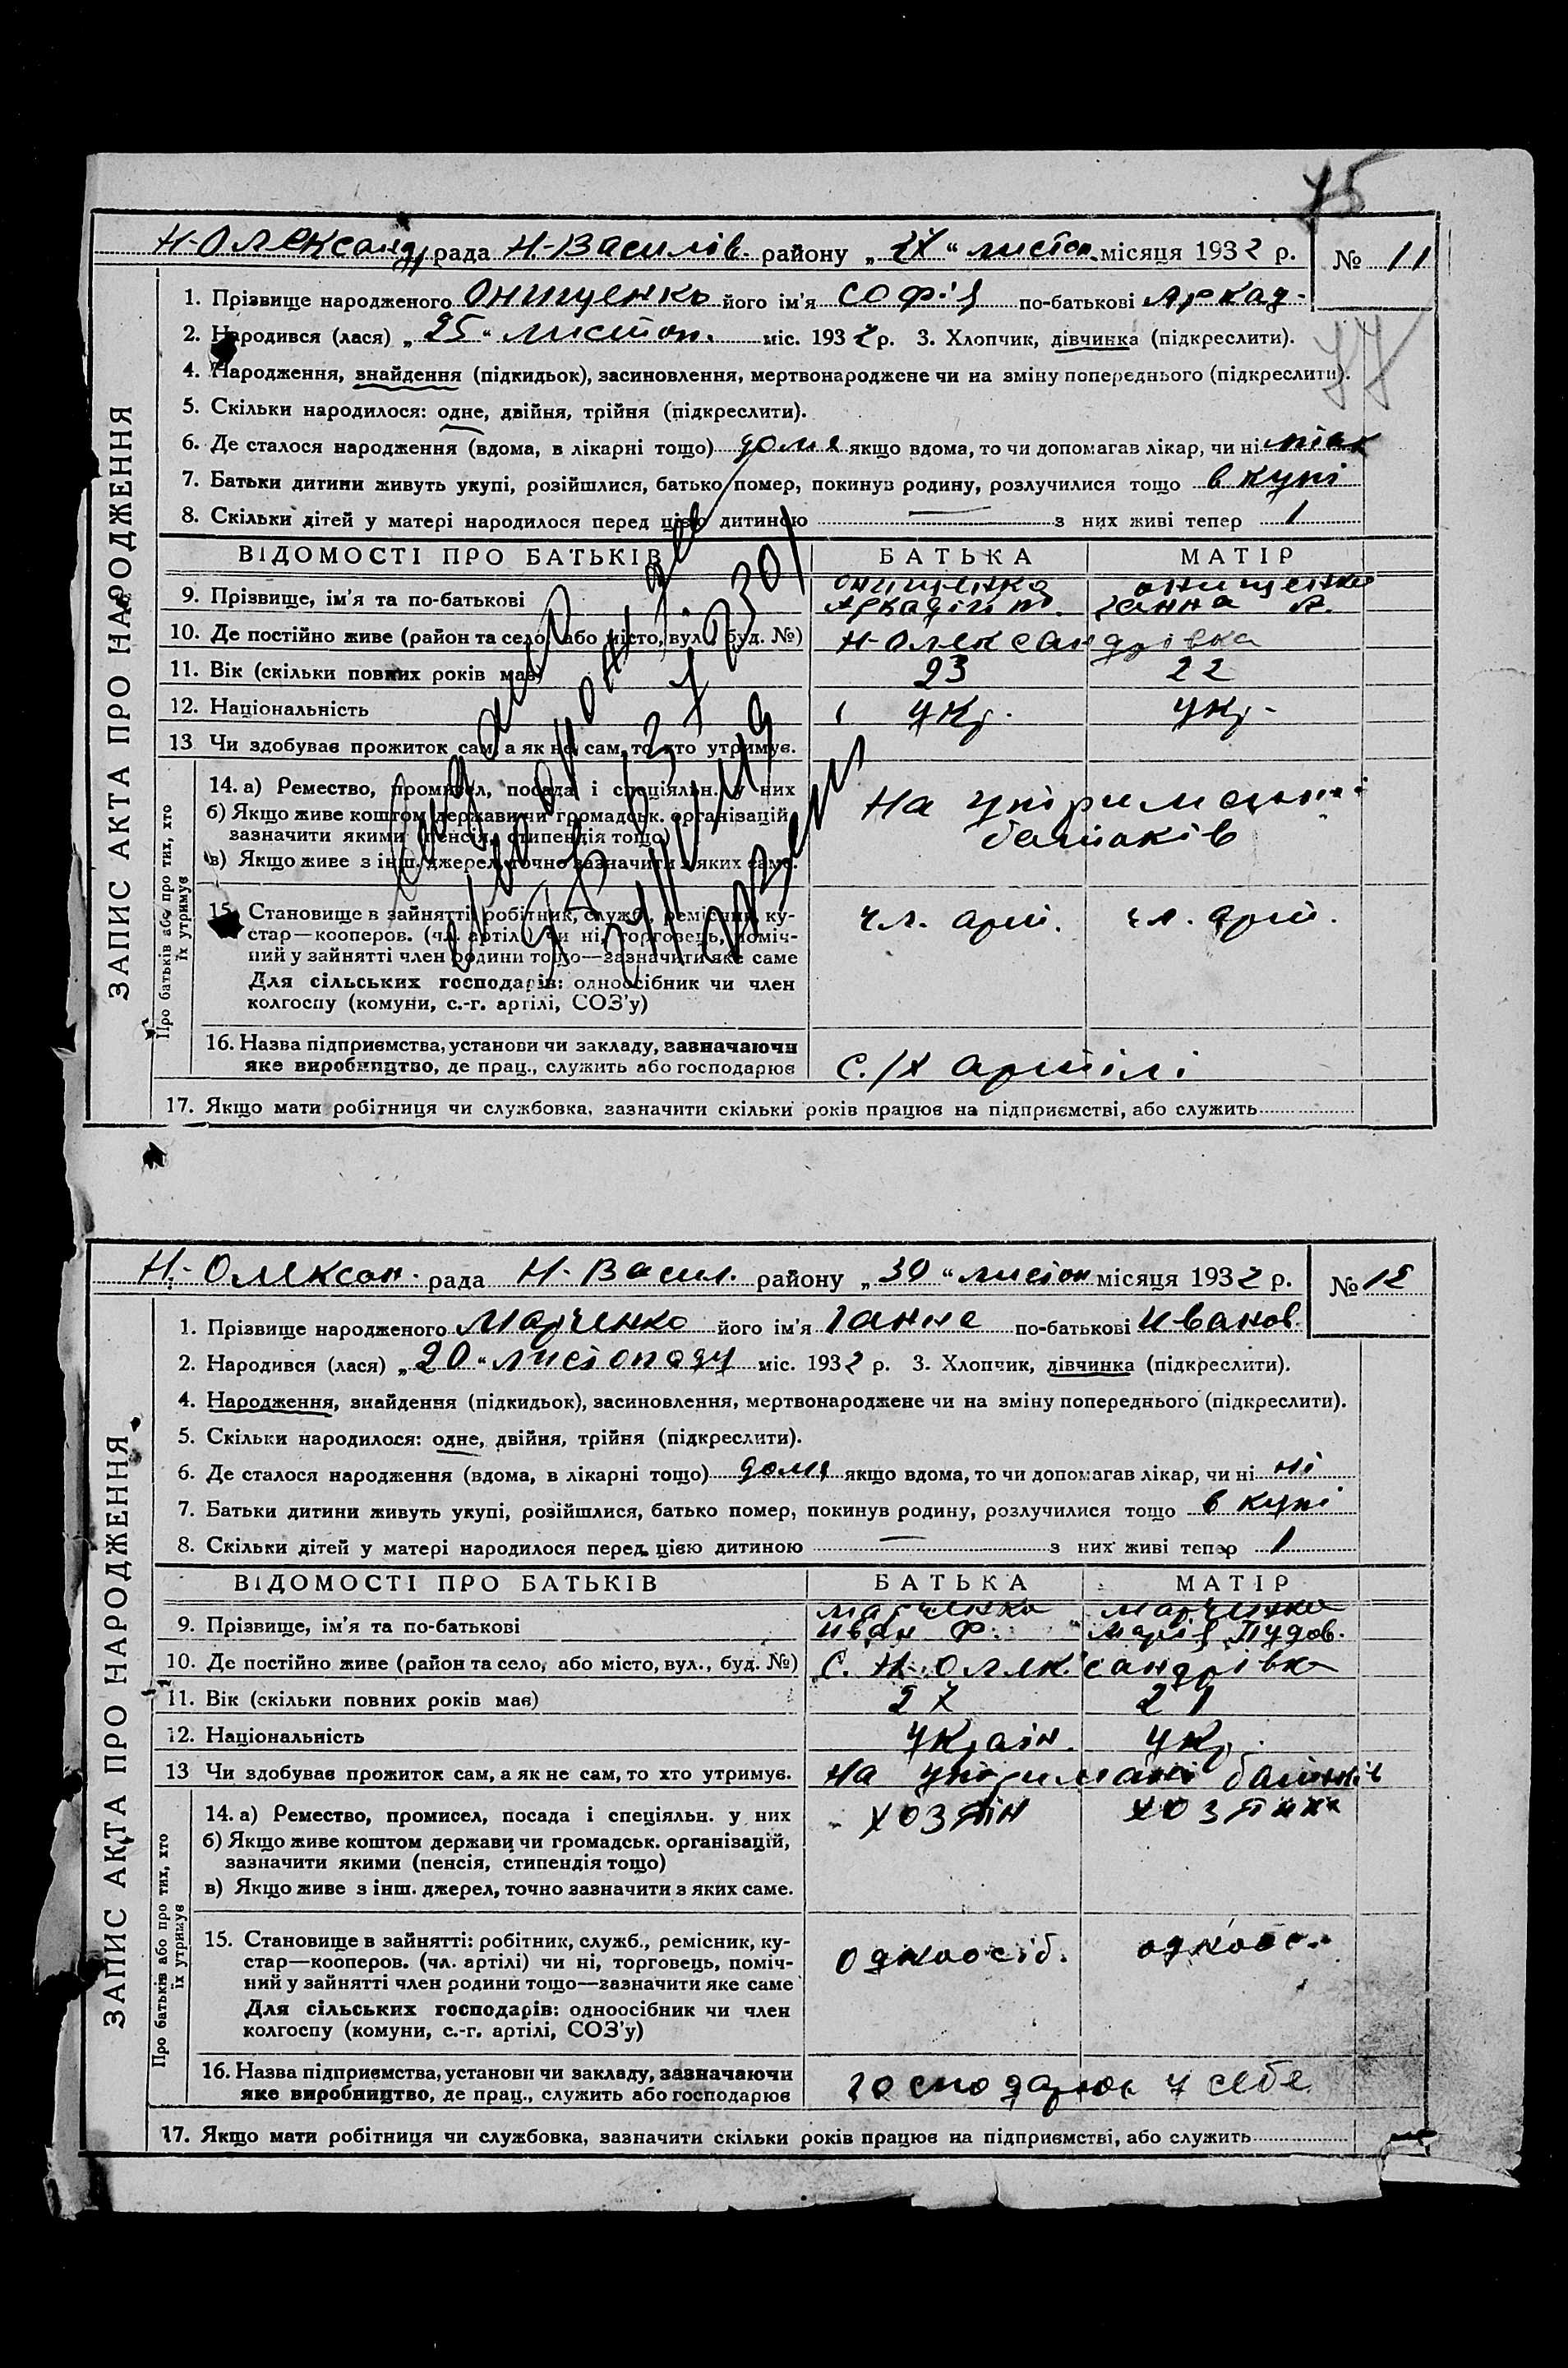 75
Н-Олександр рада Н-Василів. району „ “ листоп. місяця 1932 р. № 11
77
ЗАПИС АКТА ПРО НАРОДЖЕННЯ
1. Прізвище народженого Онищенко його ім'я Софія по-батькові Аркад-
2. Народився (лася) „25“ листоп. міс. 1932 р. 3. Хлопчик, дівчинка (підкреслити).
4. Народження, знайдення (підкидьок), засиновлення, мертвонароджене чи на зміну попереднього (підкреслити).
5. Скільки народилося: одне, двійня, трійня (підкреслити).
6. Де сталося народження (вдома, в лікарні тощо) дома якщо вдома, то чи допомагав лікар, чи ні
7. Батьки дитини живуть укупі, розійшлися, батько помер, покинув родину, розлучилися тощо в купі
8. Скільки дітей у матері народилося перед цією дитиною — з них живі тепер 1
ВІДОМОСТІ ПРО БАТЬКІВ БАТЬКА МАТІР
9. Прізвище, ім'я та по-батькові Онищенко Аркадій Онищенко Ганна
10. Де постійно живе (район та село, або місто, вул., буд. №) Н-Олександрівка
11. Вік (скільки повних років має) 23 22
12. Національність укр. укр-
13 Чи здобував прожиток сам, а як не сам, то хто утримує.
Про батьків або про тих, хто їх утримує
14. а) Ремество, промисел, посада і спеціяльн. у них
б) Якщо живе коштом держави чи громадськ. організацій, зазначити якими (пенсія, стипендія тощо)
в) Якщо живе з інш. джерел, точно зазначити з яких саме.
На утриманні
батьків
15. Становище в зайнятті: робітник, служб., ремісник, ку-
стар—кооперов. (чл. артілі) чи ні, торговець, поміч-
ний у зайнятті член родини тощо—зазначити яке саме
Для сільських господарів: одноосібник чи член
колгоспу (комуни, с.-г. артілі, СОЗ'у)
чл. арт. чл. арт.
16. Назва підприємства, установи чи закладу, зазначаючи
яке виробництво, де прац., служить або господарює
с./х артілі
17. Якщо мати робітниця чи службовка, зазначити скільки років працює на підприємстві, або служить
Н.-Олексан. рада Н-Васил. району „30“ листоп місяця 1932 р. № 12
ЗАПИС АКТА ПРО НАРОДЖЕННЯ
1. Прізвище народженого Марченко його ім'я Ганна по-батькові Иванов.
2. Народився (лася) „20“ листопаду міс. 1932 р. 3. Хлопчик, дівчинка (підкреслити).
4. Народження, знайдення (підкидьок), засиновлення, мертвонароджене чи на зміну попереднього (підкреслити).
5. Скільки народилося: одне, двійня, трійня (підкреслити).
6. Де сталося народження (вдома, в лікарні тощо) дома якщо вдома, то чи допомагав лікар, чи ні ні
7. Батьки дитини живуть укупі, розійшлися, батько помер, покинув родину, розлучилися тощо в купі
8. Скільки дітей у матері народилося перед цією дитиною — з них живі тепер 1
ВІДОМОСТІ ПРО БАТЬКІВ БАТЬКА МАТІР
9. Прізвище, ім'я та по-батькові Марченко Иван Ф. Марченко Марія Тудов.
10. Де постійно живе (район та село, або місто, вул., буд. №) С. Н.-Олександрівка
11. Вік (скільки повних років має) 27 21
12. Національність україн. укр.
13 Чи здобував прожиток сам, а як не сам, то хто утримує. на утримані батьків
Про батьків або про тих, хто їх утримує
14. а) Ремество, промисел, посада і спеціяльн. у них
б) Якщо живе коштом держави чи громадськ. організацій,
зазначити якими (пенсія, стипендія тощо)
в) Якщо живе з інш. джерел, точно зазначити з яких саме.
хозяїн
15. Становище в зайнятті: робітник, служб., ремісник, ку-
стар—кооперов. (чл. артілі) чи ні, торговець, поміч-
ний у зайнятті член родини тощо—зазначити яке саме
Для сільських господарів: одноосібник чи член
колгоспу (комуни, с.-г. артілі, СОЗ'у)
одноосіб. одноос.
16. Назва підприємства, установи чи закладу, зазначаючи
яке виробництво, де прац., служить або господарює
господарює у себе
17. Якщо мати робітниця чи службовка, зазначити скільки років працює на підприємстві, або служить